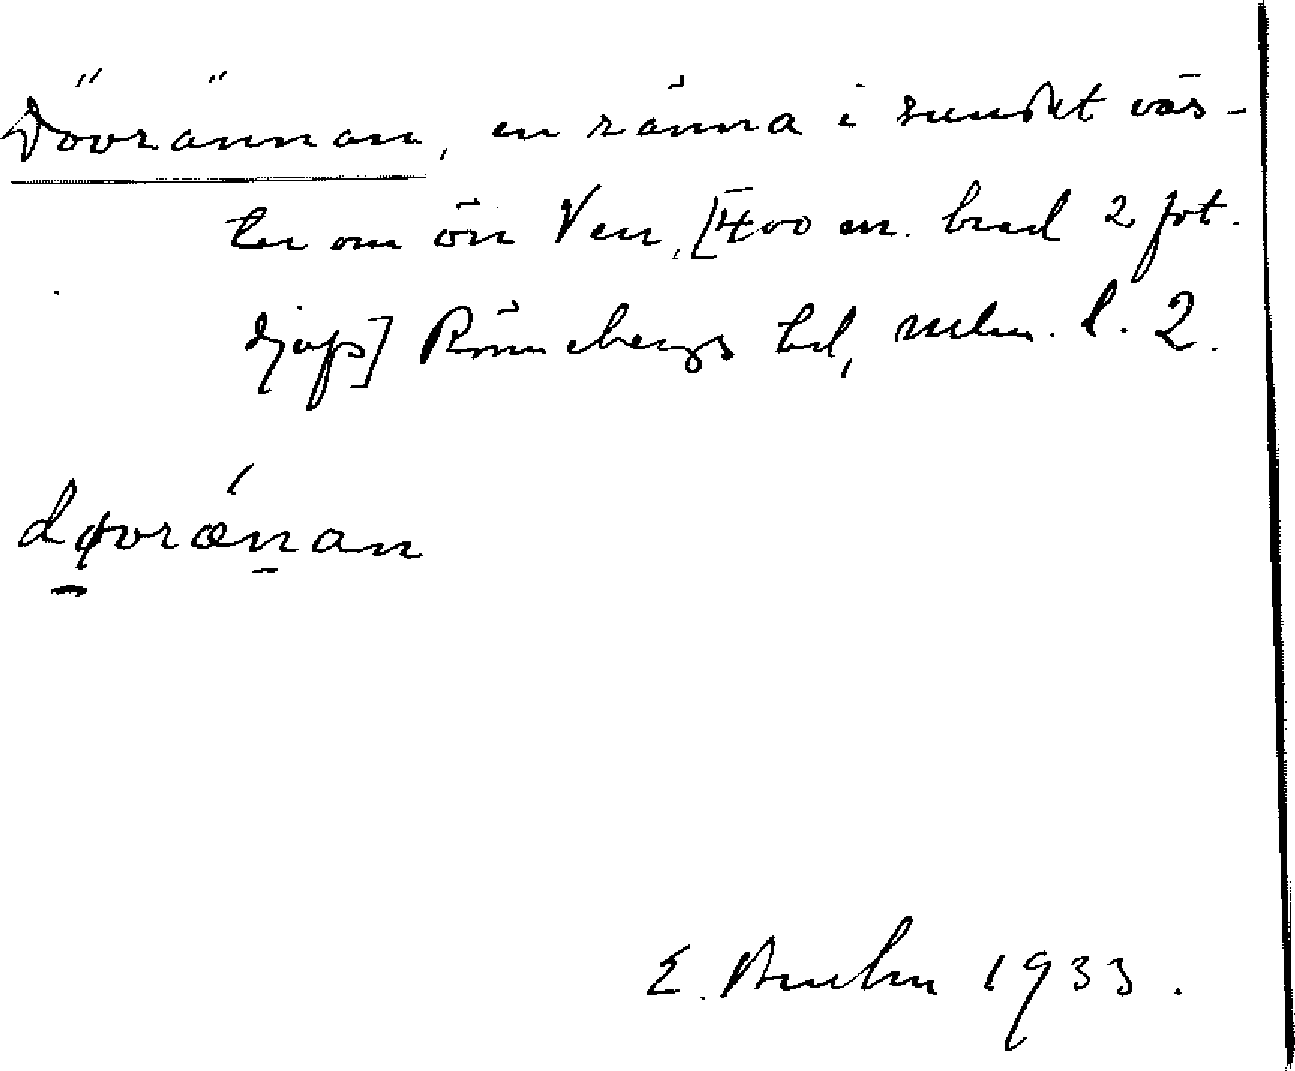 Dövrännan, en ränna i sundet väs-
ter om ön Ven, [400 m. bred 2 fot.
djup] Rönnebergs hd, l. 2.
døvrænan
E. 1933.